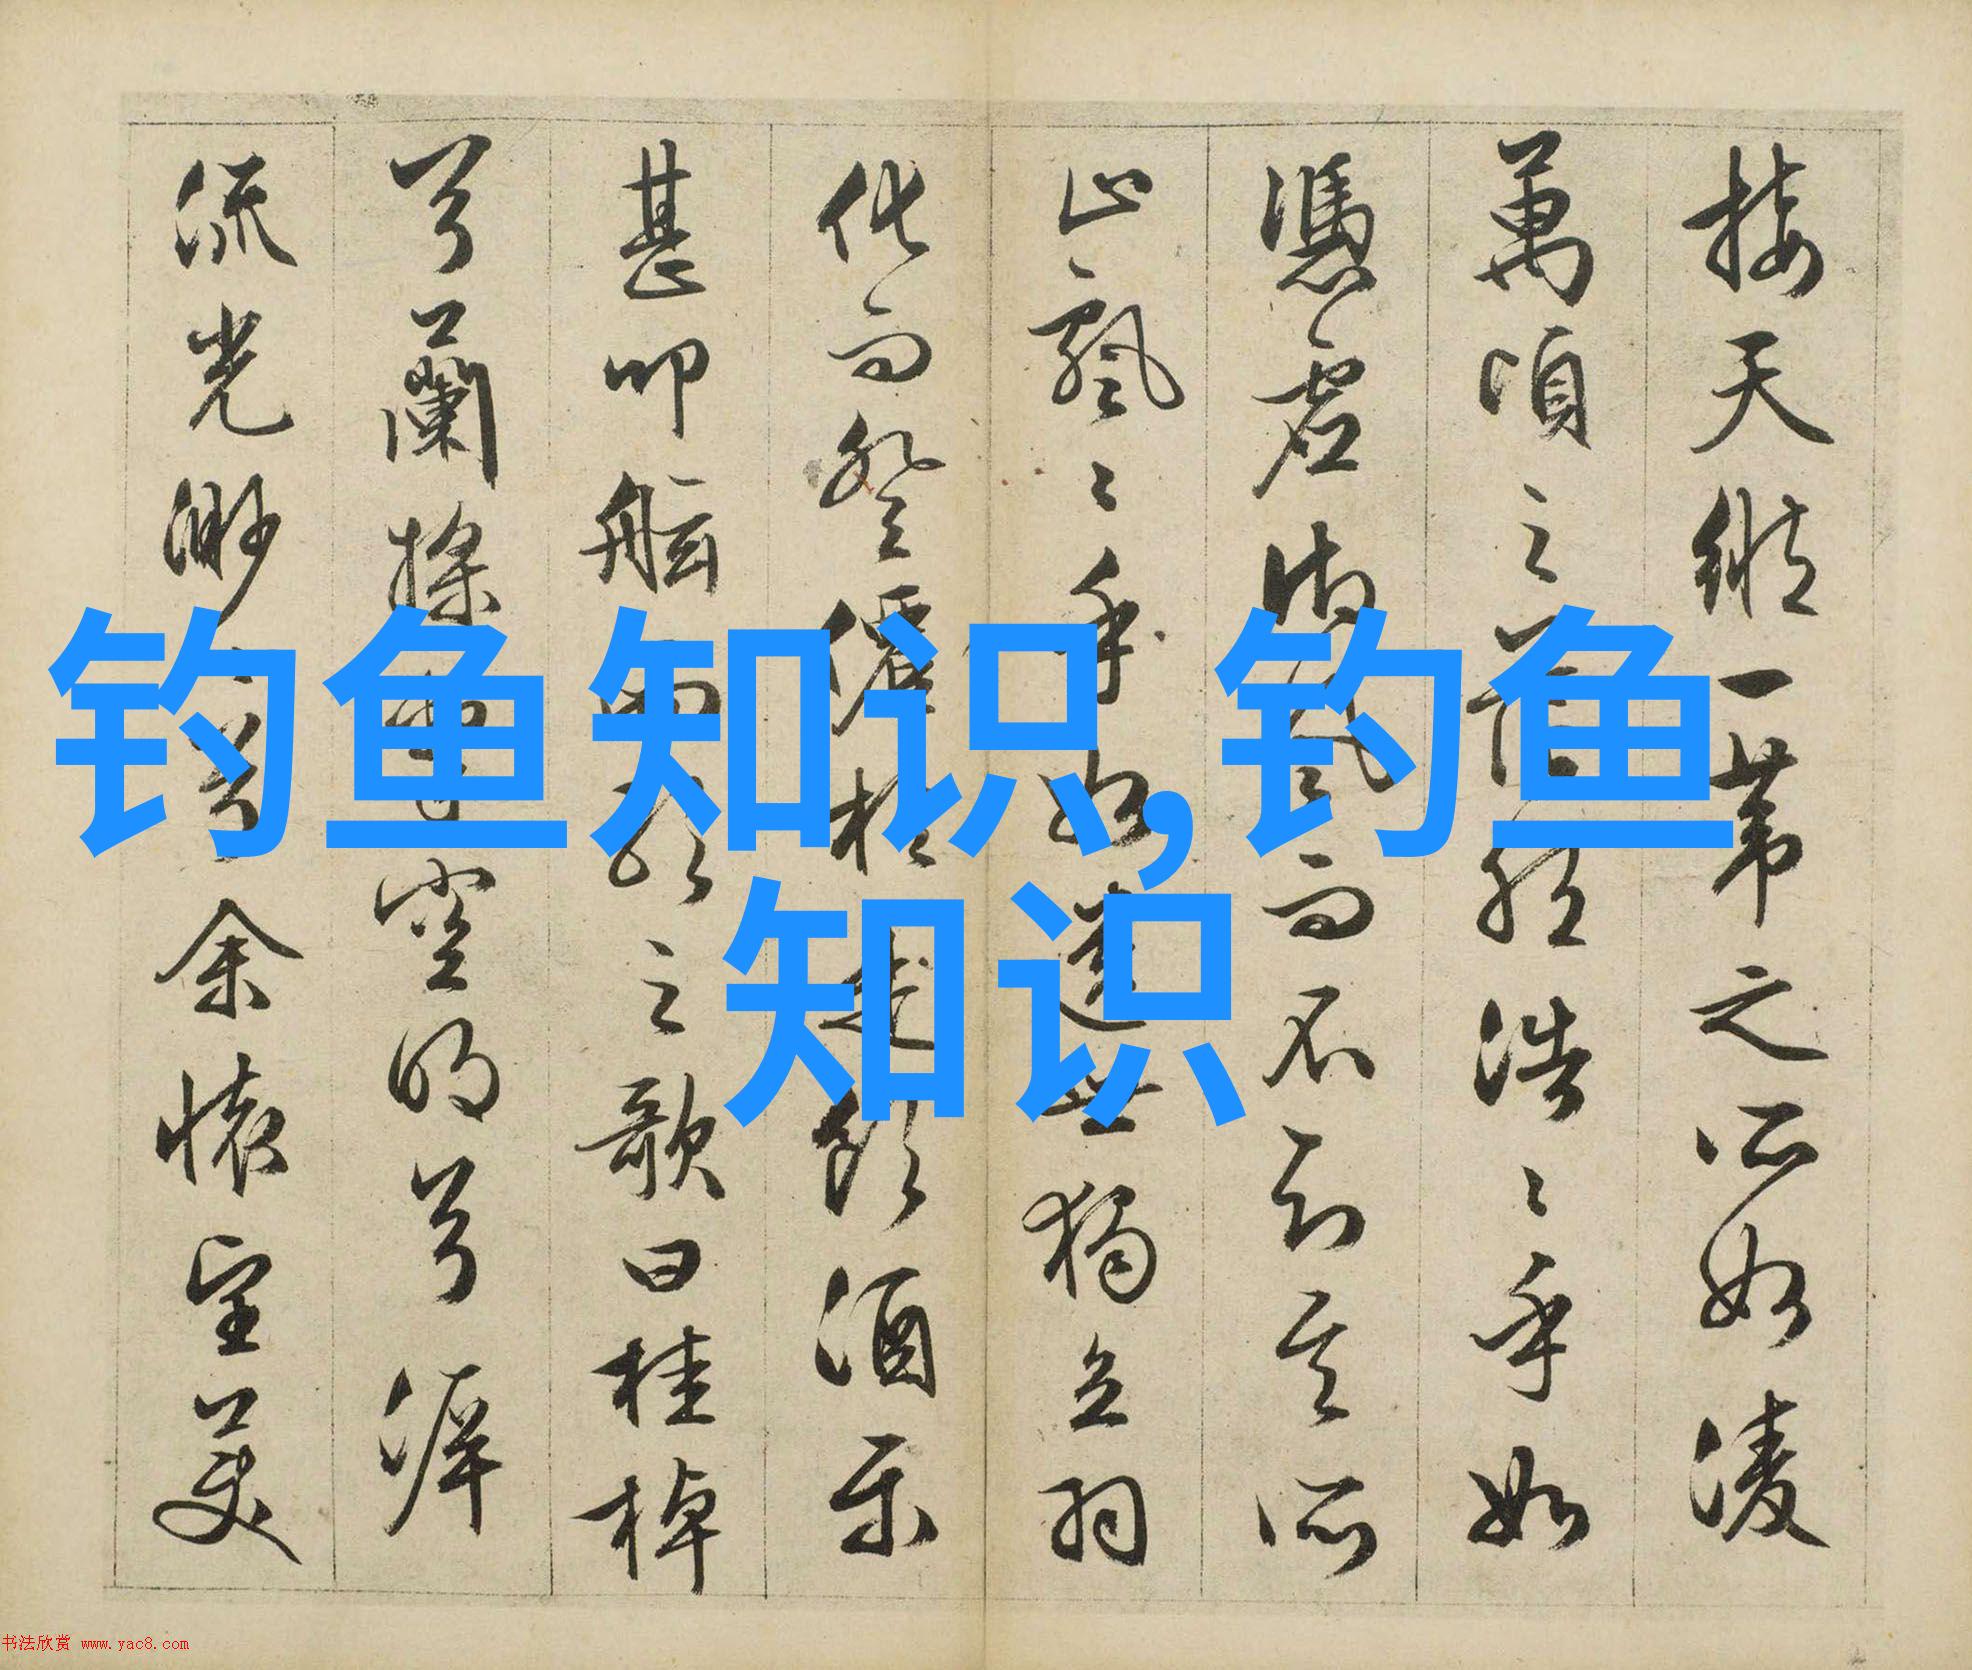 接天縱一葦之所如凌
萬頃之茫然浩〻乎如
憑虛御風而不知其所
止飄〻乎如遺世獨立羽
化而登僊於是飲酒樂
甚叩舷而歌之歌曰桂棹
兮蘭槳擊空明兮泝
流光渺〻兮余懷望美
钓鱼知识,钓鱼
知识
书法欣赏 www.yac8.com